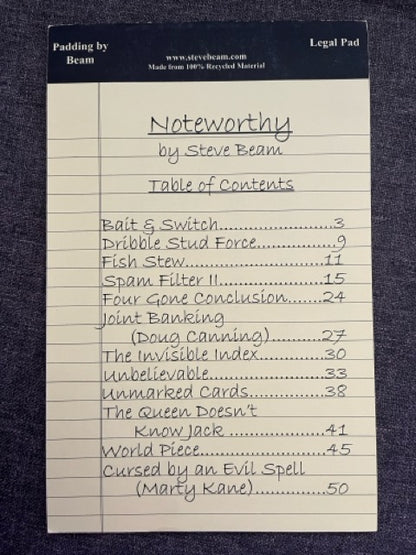 Padding by
Beam
www.stevebeam.com
Made from 100% Recycled Material
Legal Pad
Noteworthy
by Steve Beam
Table of Contents
Bait & Switch.......................3
Dribble Stud Force..............9
Fish Stew............................11
Spam Filter II....................15
Four Gone Conclusion.......24
Joint Banking
(Doug Canning)..........27
The Invisible Index............30
Unbelievable.......................33
Unmarked Cards................38
The Queen Doesn't
Know Jack .................41
World Piece........................45
Cursed by an Evil Spell
(Marty Kane).............50